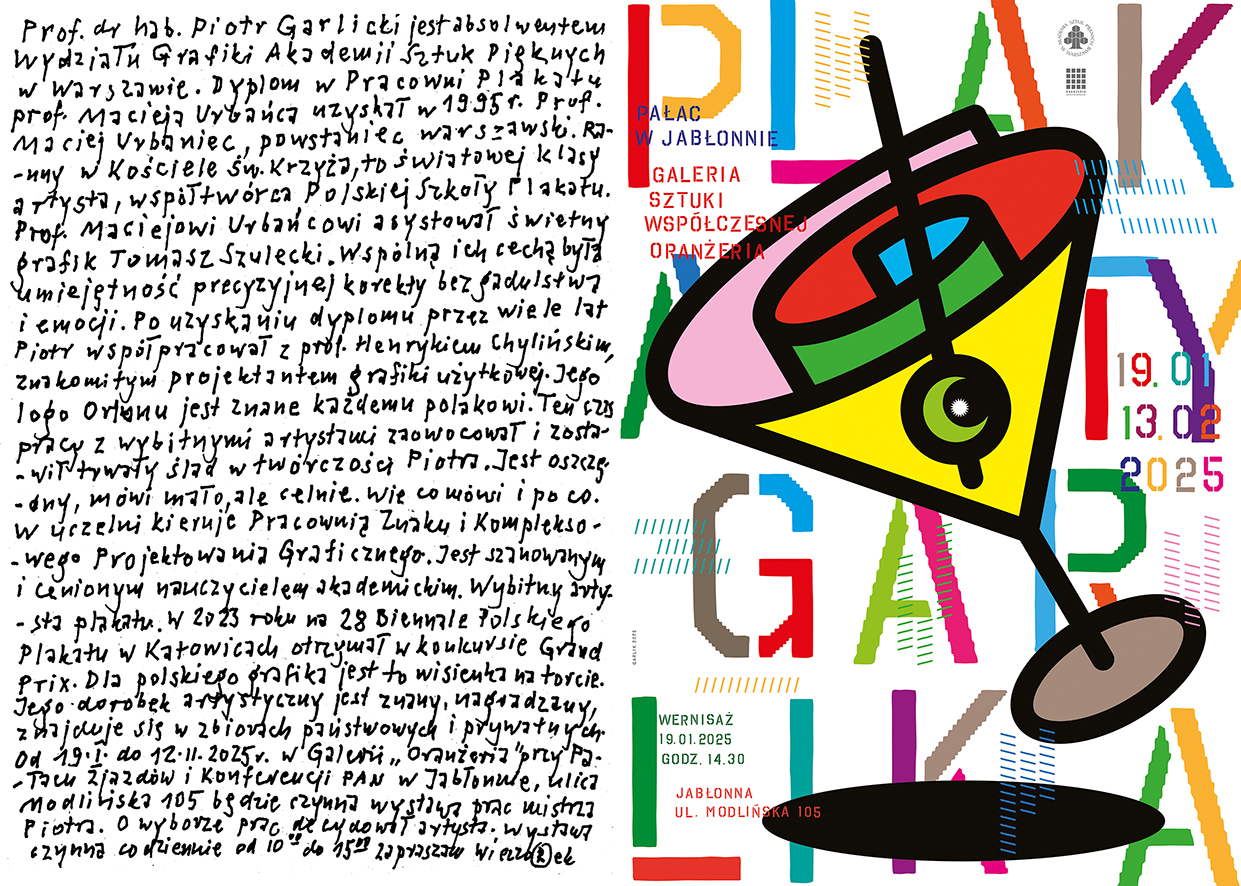 Prof. dr hab. Piotr Garlicki jest absolwentem
Wydziału Grafiki Akademii Sztuk Pięknych
w Warszawie. Dyplom w Pracowni Plakatu
prof. Macieja Urbańca uzyskał w 1995 r. Prof.
Maciej Urbaniec, powstaniec warszawski. Ra-
-nny w Kościele Św. Krzyża, to światowej klasy
artysta, współtwórca Polskiej Szkoły Plakatu.
Prof. Maciejowi Urbańcowi asystował świetny
grafik Tomasz Szulecki. Wspólną ich cechą była
umiejętność precyzyjnej korekty bez gadulstwa
i emocji. Po uzyskaniu dyplomu przez wiele lat
Piotr współpracował z prof. Henrykiem Chylińskim,
znakomitym projektantem grafiki użytkowej. Jego
logo Orlenu jest znane każdemu polakowi. Ten czas
pracy z wybitnymi artystami zaowocował i zosta-
-wił trwały ślad w twórczości Piotra. Jest oszczę-
-dny, mówi mało, ale celnie. Wie co mówi i po co.
W uczelni kieruje Pracownią Znaku i Komplekso-
-wego Projektowania Graficznego. Jest szanowanym
i cenionym nauczycielem akademickim. Wybitny arty-
-sta plakatu. W 2023 roku na 28 Biennale Polskiego
Plakatu w Katowicach otrzymał w konkursie Grand
Prix. Dla polskiego grafika jest to wisienka na torcie.
Jego dorobek artystyczny jest znany, nagradzany,
znajduje się w zbiorach państwowych i prywatnych.
Od 19.I. do 12.II.2025r. w Galerii „Oranżeria" przy Pa-
-łacu Zjazdów i Konferencji PAN w Jabłonnie, ulica
Modlińska 105 będzie czynna wystawa prac mistrza
Piotra. O wyborze prac decydował artysta. Wystawa
czynna codziennie od 10⁰⁰ do 15⁰⁰ zapraszam Wieczorek
PLAK
ATY
GAR
LIKA
AKADEMIA SZTUK PIĘKNYCH W WARSZAWIE
ORANŻERIA
PAŁAC
W JABŁONNIE
GALERIA
SZTUKI
WSPÓŁCZESNEJ
ORANŻERIA
19.01
13.02
2025
GARLIK 2025
WERNISAŻ
19.01.2025
GODZ. 14.30
JABŁONNA
UL. MODLIŃSKA 105